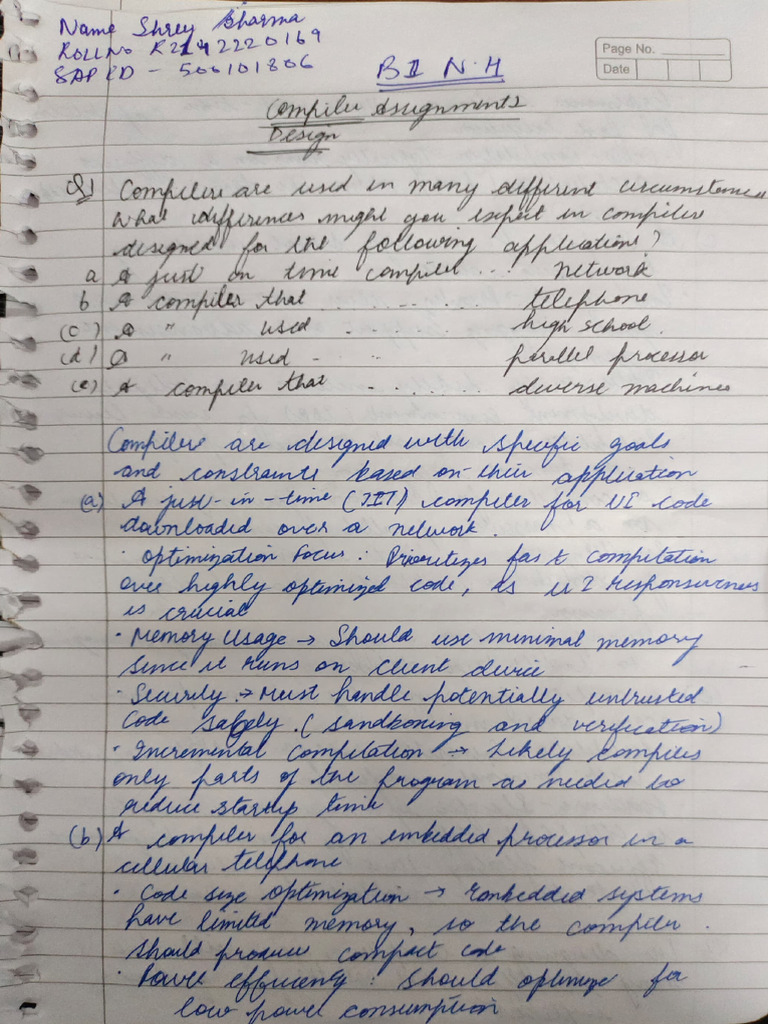 Name Shrey Sharma
Roll No R2142220169
SAP ID - 500101806
B2 N.H
Page No.
Date
Compiler Assignments
Design
Q1 Compilers are used in many different circumstances
What differences might you expect in compiler
designed for the following applications?
a A just in time compiler ... network
b A compiler that .......... telephone
(c) A " used high school.
(d) A " used - " parallel processor
(e) A compiler that ........ diverse machines
Compilers are designed with specific goals
and constraints based on their application
(a) A just-in-time (JIT) compiler for UI code
downloaded over a network.
· Optimization Focus : Prioritizes fast compilation
over highly optimized code, as UI responsiveness
is crucial
· Memory Usage → Should use minimal memory
since it runs on client device
· Security → Must handle potentially untrusted
code safely. (sandboxing and verification)
· Incremental compilation → Likely compiles
only parts of the program as needed to
reduce startup time
(b) A compiler for an embedded processor in a
cellular telephone
· Code size optimization → Embedded systems
have limited memory, so the compiler
should produce compact code
· Power efficiency : Should optimize for
low power consumption